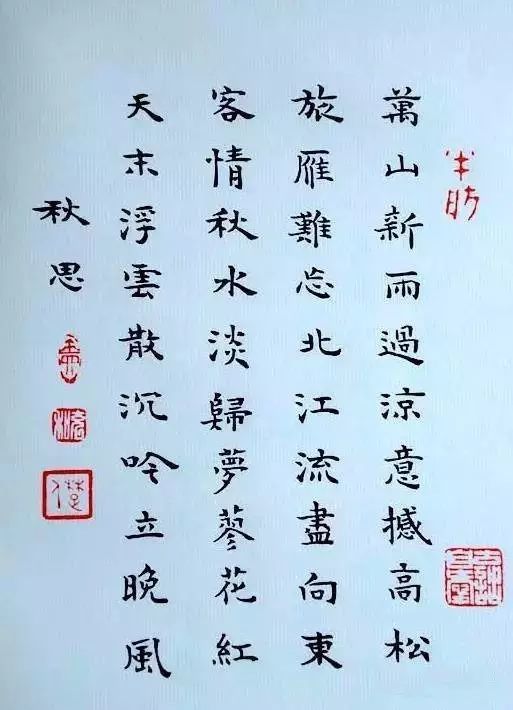 萬山新雨過涼意撼高松
旅雁難忘北江流盡向東
客情秋水淡歸夢蓼花紅
天末浮雲散沉吟立晚風
秋思